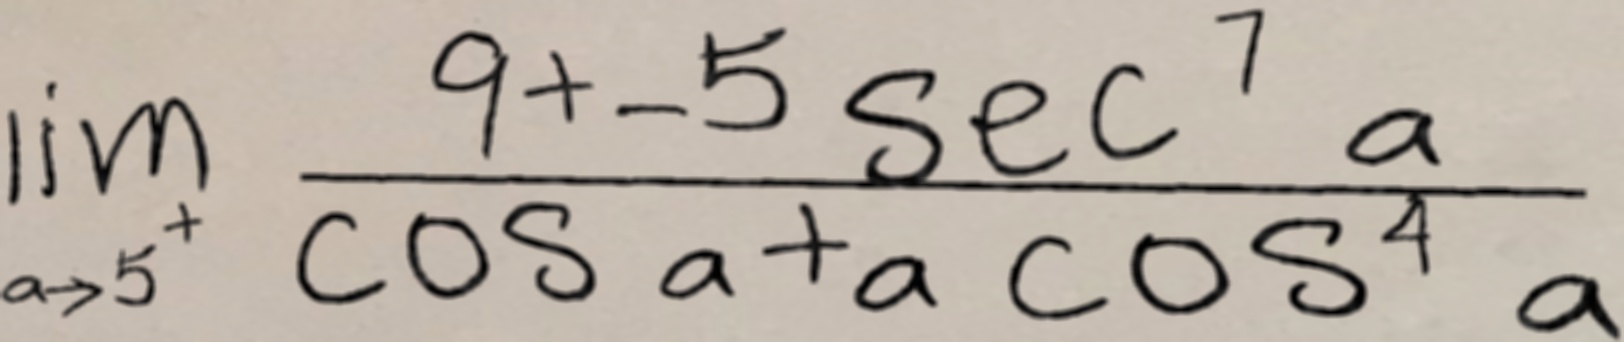 \lim_{a \to 5^+} \frac{9 + -5 \sec^7 a}{\cos a + a \cos^4 a}